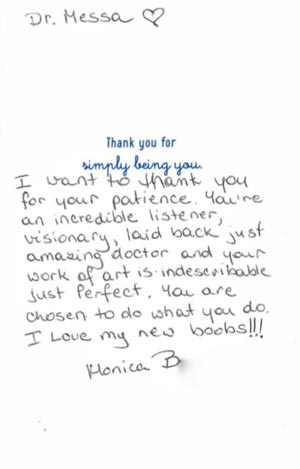 Dr. Messa ♡
Thank you for
simply being you.
I want to thank you
for your patience. You're
an incredible listener,
visionary, laid back just
amazing doctor and your
work of art is indescribable
just Perfect. You are
chosen to do what you do.
I Love my new boobs!!!
Monica B